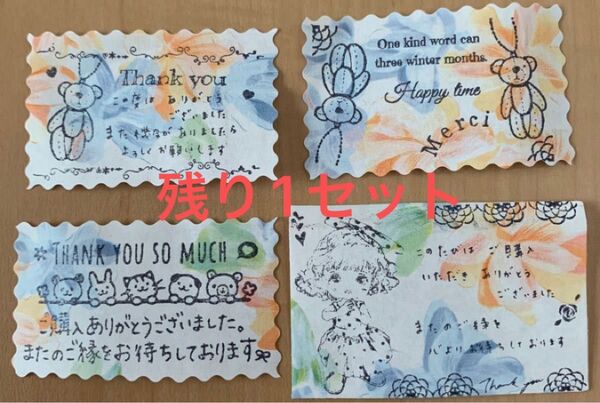 Thank you
この度は ありがとう
ございました
また機会がありましたら
よろしくお願いします
One kind word can
three winter months.
Happy time
Merci
残り1セット
THANK YOU SO MUCH
ご購入ありがとうございました。
またのご縁をお待ちしております
このたびは ご購入
いただき ありがとう
ございました
またのご縁を
心よりお待ちしております
Thank you